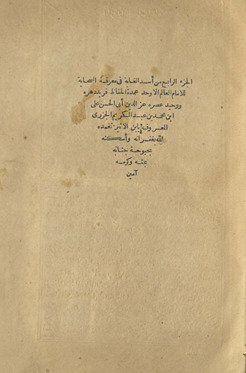 الجزء الرابع من أسد الغابة في معرفة الصحابة
للامام العالم الاوحد عمدة الحفاظ فريد دهره
ووحيد عصره عز الدين أبي الحسن علي
ابن محمد بن عبد الكريم الجزري
المعروف بابن الاثير تغمده
الله بغفرانه وأسكنه
بحبوحة جنانه
بمنه وكرمه
آمين